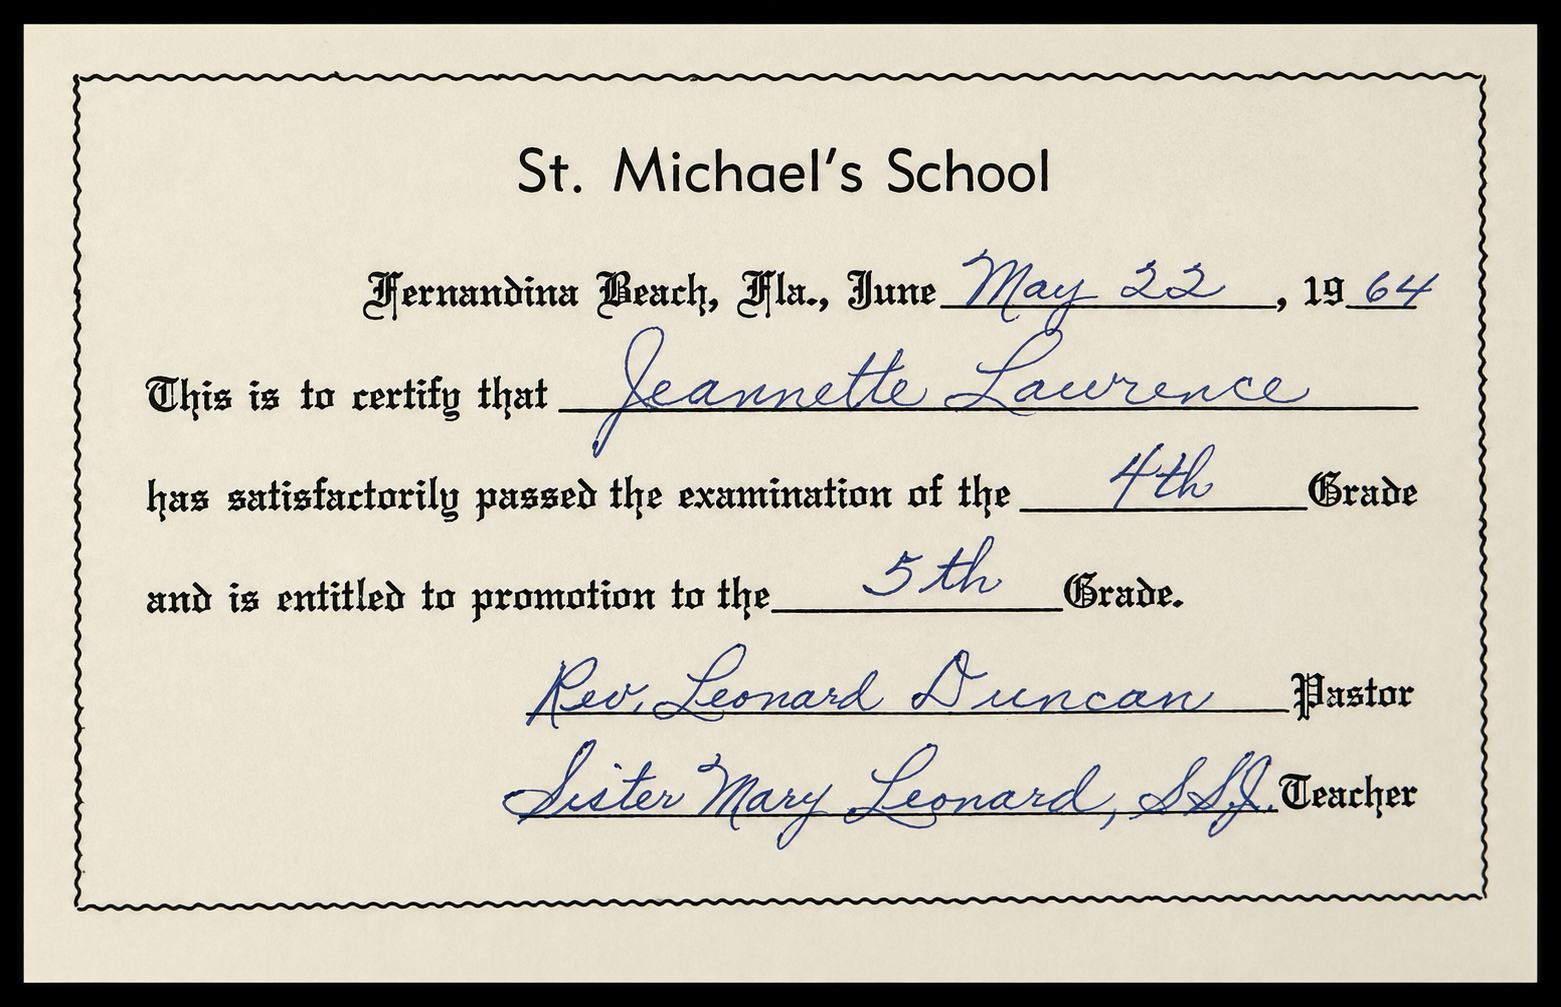 St. Michael's School
Fernandina Beach, Fla., June May 22, 1964
This is to certify that Jeannette Lawrence
has satisfactorily passed the examination of the 4th Grade
and is entitled to promotion to the 5th Grade.
Rev. Leonard Duncan Pastor
Sister Mary Leonard, SSJ. Teacher